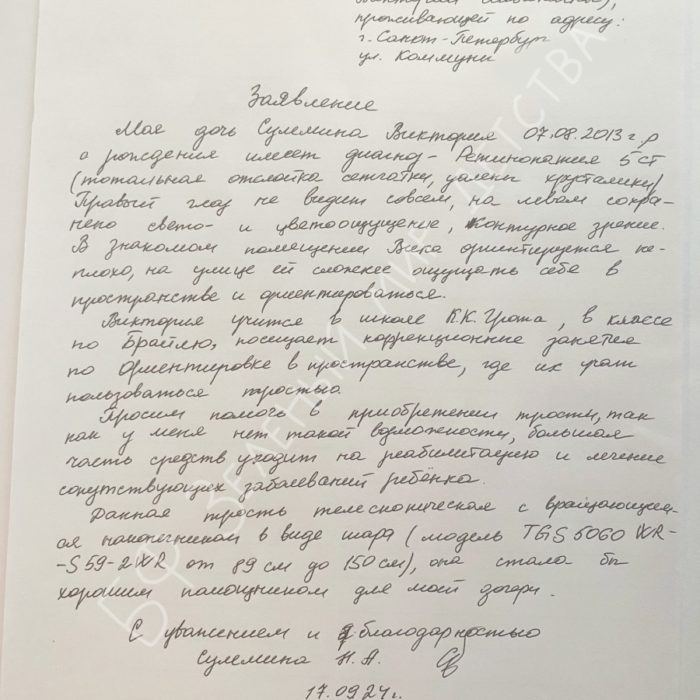 проживающей по адресу:
г. Санкт-Петербург
ул. Коммуны
Заявление
Моя дочь Сулемина Виктория 07.08.2013 г.р
с рождения имеет диагноз - Ретинопатия 5 ст
(тотальная отслойка сетчатки, удалены хрусталики)
Правый глаз не видит совсем, на левом сохра-
нено свето- и цветоощущение, контурное зрение.
В знакомом помещении Вика ориентируется не-
плохо, на улице ей сложнее ощущать себя в
пространстве и ориентироваться.
Виктория учится в школе К.К. Грота, в классе
по Брайлю, посещает коррекционные занятия
по Ориентировке в пространстве, где их учат
пользоваться тростью.
Просим помочь в приобретении трости, так
как у меня нет такой возможности, большая
часть средств уходит на реабилитацию и лечение
сопутствующих заболеваний ребёнка.
Данная трость телескопическая с вращающим-
ся наконечником в виде шара (модель TGS 5060 WR-
-S59-2WR от 89 см до 150 см), она стала бы
хорошим помощником для моей дочери.
С уважением и благодарностью
Сулемина Н. А.
17.09.24 г.
БФ ЗЕЛЕНЫЙ МИР ДЕТСТВА